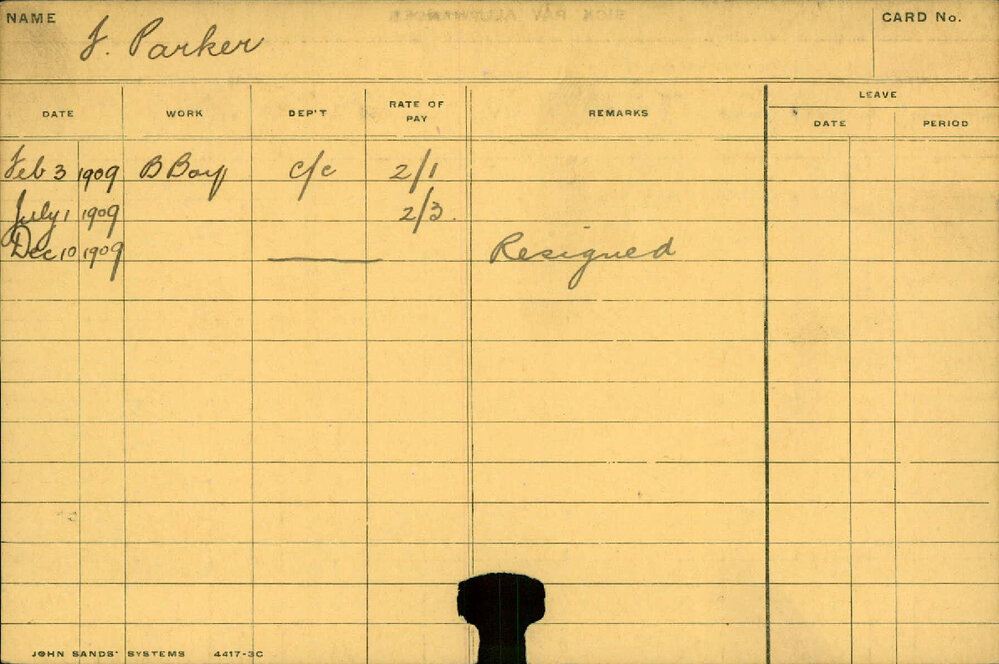 NAME F. Parker CARD No.
DATE WORK DEP'T RATE OF PAY REMARKS LEAVE
DATE PERIOD
Feb 3 1909 B Boy c/c 2/1
July 1 1909 2/3.
Dec 10 1909 Resigned
JOHN SANDS' SYSTEMS 4417-3C